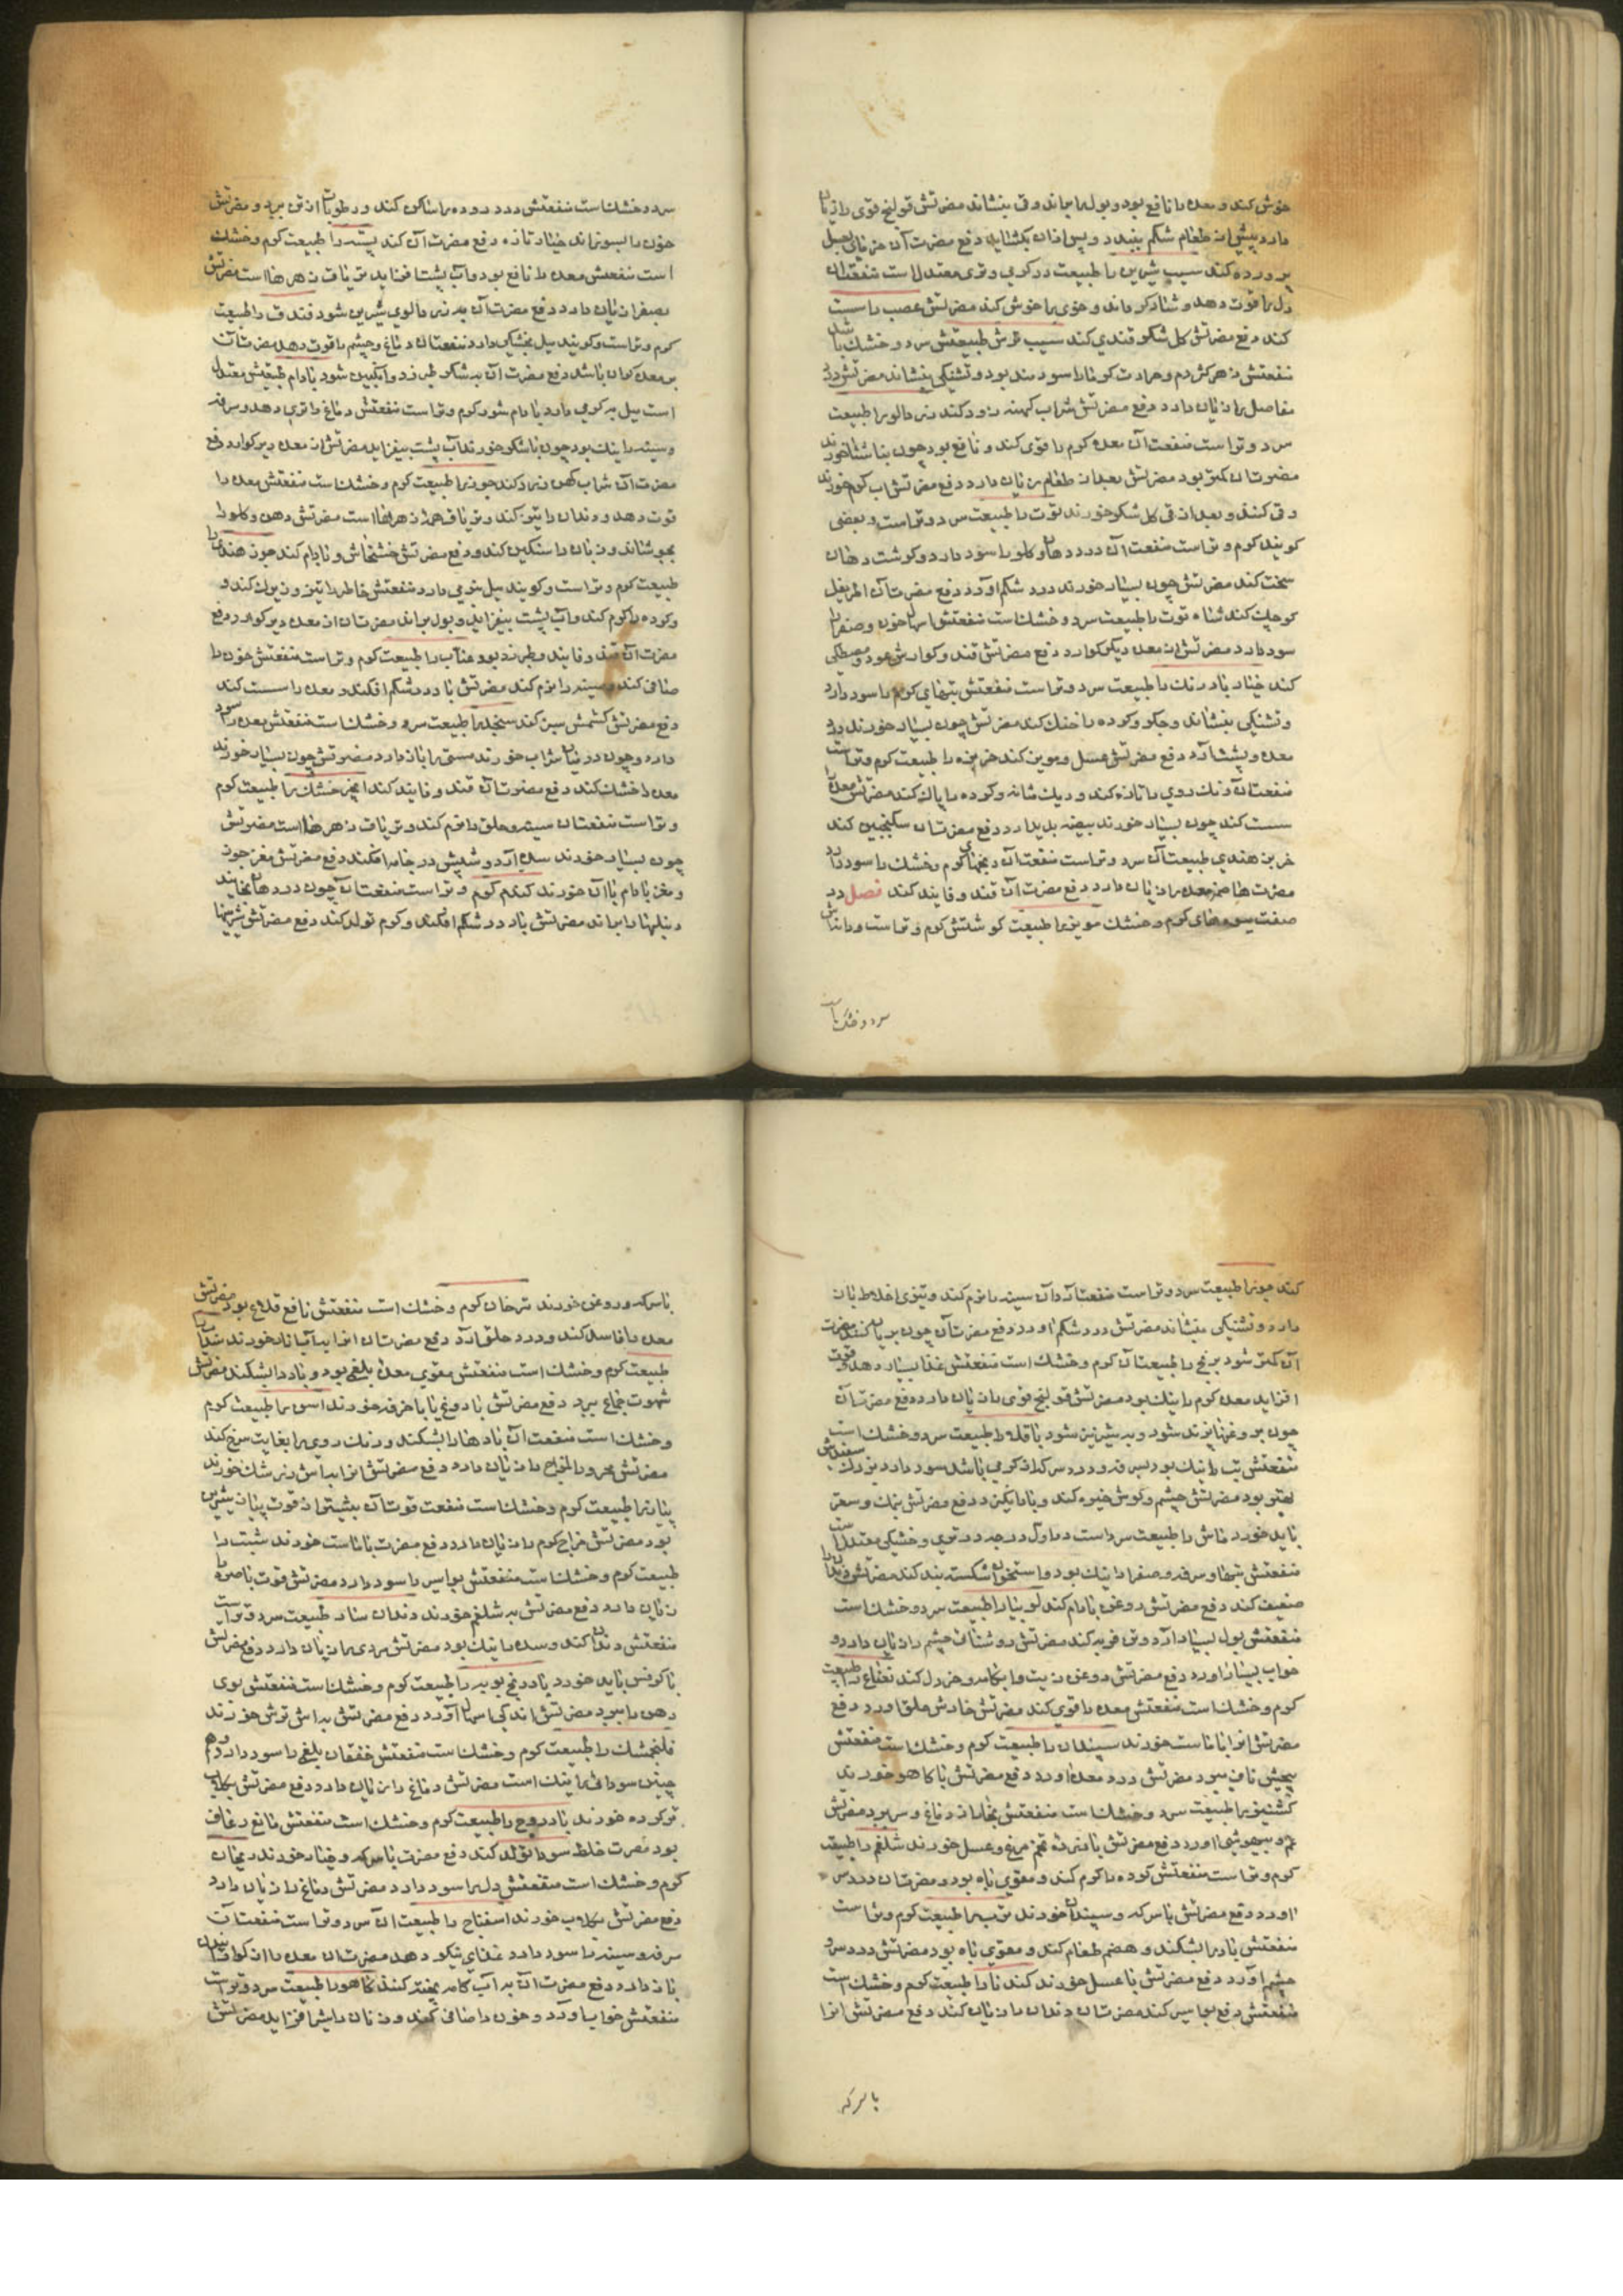 خوش کند و معده را نافع بود و بول براند و قی بنشاند مضرتش قولنج قوی را زیان
دارد پیش از طعام شکم ببندد و پس از آن بگشاید دفع مضرت آن خرمای بعسل
پرورده کند سیب شیرین را طبیعت در گرمی و تری معتدل است منفعتش آن
دل را قوت دهد و شادکر داند و خوی را خوش کند مضرتش عصب را سست
کند دفع مضرتش گل شکر قندی کند سیب ترش طبیعتش سرد و خشک باشد
منفعتش زهر کژدم و حرارت گرما را سودمند بود و تشنگی بنشاند مضرتش درد
مفاصل را زیان دارد دفع مضرتش شراب کهنه زود کند زردالو را طبیعت
سرد و تر است منفعت آن معده گرم را قوی کند و نافع بود چون بناشتا خورند
مضرت آن کمتر بود مضرتش بعد از طعام زیان دارد دفع مضرتش آب گرم خورند
و قی کنند و بعد از قی گل شکر خورند توت را طبیعت سرد و تر است و بعضی
گویند گرم و تر است منفعت آن درد دهان و گلو را سود دارد و گوشت دهان
سخت کند مضرتش چون بسیار خورند درد شکم آورد دفع مضرت آن اطریفل
کوچک کند شاه توت را طبیعت سرد و خشک است منفعتش اسهال خون و صفرا را
سود دارد مضرتش از معده دیر گوارد دفع مضرتش قند و گوارش عود و مصطکی
کند خیار بادرنگ را طبیعت سرد و تر است منفعتش تبهای گرم را سود دارد
و تشنگی بنشاند و جگر و گرده را خنک کند مضرتش چون بسیار خورند درد
معده و پشت آرد دفع مضرتش عسل و مویز کند خربزه را طبیعت گرم و تر است
منفعت آن رنگ روی را تازه کند و ریگ مثانه و گرده را پاک کند مضرتش معده را
سست کند چون بسیار خورند هیضه پدید آرد دفع مضرت آن سکنجبین کند
خربزه هندی طبیعت آن سرد و تر است منفعت آن رنجهای گرم و خشک را سود دارد
مضرت هاضمه معده را زیان دارد دفع مضرت آن قند و فانید کند فصل در
صفت میوه های گرم و خشک مویز را طبیعت گوشتش گرم و تر است و دانه اش
سرد و خشک است
سرد و خشک است منفعتش درد روده را ساکن کند و رطوبات از تن ببرد و مضرتش
خون را بسوزاند خیار تازه دفع مضرت آن کند پسته را طبیعت گرم و خشک
است منفعتش معده را نافع بود و آب پشت افزاید تریاق زهرها است مضرتش
بصفرا زیان دارد دفع مضرت آن به زردالوی شیرین شود فندق را طبیعت
گرم و تر است و گویند میل بخشکی دارد منفعت آن دماغ و چشم را قوت دهد مضرت آن
بر معده گران باشد دفع مضرت آن به شکر طبرزد و انگبین شود بادام طبیعتش معتدل
است میل به گرمی دارد بادام شور گرم و تر است منفعتش دماغ را تری دهد و سرفه
و سینه را نیک بود چون با شکر خورند آب پشت بیفزاید مضرتش از معده دیر گوارد دفع
مضرت آن شراب کهن زرد کند جوز را طبیعت گرم و خشک است منفعتش معده را
قوت دهد و دندان را تیز کند و تریاق همه زهرها است مضرتش دهن و گلو را
بجوشاند و زبان را سنگین کند و دفع مضرتش خشخاش و بادام کند جوز هندی را
طبیعت گرم و تر است و گویند میل بنرمی دارد منفعتش خاطر را تیز و زیرک کند و
و گرده را گرم کند و آب پشت بیفزاید و بول براند مضرت آن از معده دیر گوارد دفع
مضرت آن قند و فانید و طبرزد بود عناب را طبیعت گرم و تر است منفعتش خون را
صافی کند و سینه را نرم کند مضرتش باد در شکم افکند و معده را سست کند
دفع مضرتش کشمش سبز کند سنجد را طبیعت سرد و خشک است منفعتش معده را سود
دارد و چون در میان شراب خورند مستی را باز دارد مضرتش چون بسیار خورند
معده را خشک کند دفع مضرت آن قند و فانید کند انجیر خشک را طبیعت گرم
و تر است منفعت آن سینه و حلق را نرم کند و تریاق زهرها است مضرتش
چون بسیار خورند سده آرد و شپش در جامه افکند دفع مضرتش مغز جوز
و مغز بادام با آن خورند گندم گرم و تر است منفعت آن چون در دهان بخایند
دنبلها را براند مضرتش باد در شکم افکند و کرم تولد کند دفع مضرتش شیرینیها
کند جو را طبیعت سرد و تر است منفعت آن سینه را نرم کند و تیزی اخلاط زیان
دارد و تشنگی بنشاند مضرتش درد شکم آورد دفع مضرت آن چون بریان کنند مضرت
آن کمتر شود برنج را طبیعت آن گرم و خشک است منفعتش غذا بسیار دهد و قوت
افزاید معده گرم را نیک بود مضرتش قولنج قوی را زیان دارد دفع مضرت آن
چون بروغن پزند شود و به شیر نیز شود باقلا را طبیعت سرد و خشک است
منفعتش تب را نیک بود سرفه و درد سر که از گرمی باشد سود دارد بزرگ
بود مضرتش چشم و گوش خیره کند و باد انگیزد دفع مضرتش بنمک و سعتر
باید خورد ماش را طبیعت سرد است در اول درجه در تری و خشکی معتدل است
منفعتش تبها و سرفه و صفرا را نیک بود و استخوان شکسته بند کند مضرتش دندان را
ضعیف کند دفع مضرتش روغن بادام کند لوبیا را طبیعت سرد و خشک است
منفعتش بول بسیار آرد و تن فربه کند مضرتش روشنائی چشم را زیان دارد و
خواب بسیار آورد دفع مضرتش روغن زیت و آبکامه و خردل کند نعناع را طبیعت
گرم و خشک است منفعتش معده را قوی کند مضرتش خارش حلق آورد دفع
مضرتش انرا با ماست خورند سپندان را طبیعت گرم و خشک است منفعتش
پیچش ناف ببرد مضرتش درد معده آورد دفع مضرتش با کاهو خورند
کشنیز را طبیعت سرد و خشک است منفعتش بخار از دماغ و سر ببرد مضرتش
غم و بیهوشی آورد دفع مضرتش با زرده تخم مرغ و عسل خورند شلغم را طبیعت
گرم و تر است منفعتش گرده را گرم کند و مقوی باه بود و مضرت آن درد سر
آورد دفع مضرتش با سرکه و سپندان خورند ترب را طبیعت گرم و تر است
منفعتش باد را بشکند و هضم طعام کند و مقوی باه بود مضرتش درد سر و
چشم آورد دفع مضرتش با عسل خورند گندنا را طبیعت گرم و خشک است
منفعتش دفع بواسیر کند مضرت آن دندان را زیان کند دفع مضرتش انرا
با سرکه
با سرکه و روغن خورند ترخان گرم و خشک است منفعتش نافع قلاع بود مضرتش
معده را فاسد کند و درد حلق آرد دفع مضرت آن خورند سداب را
طبیعت گرم و خشک است منفعتش مقوی معده بلغمی بود و باد را بشکند مضرتش
شهوت جماع ببرد دفع مضرتش با دوغ یا با خرفه خورند را طبیعت گرم
و خشک است منفعت آن بادها را بشکند و رنگ روی را بغایت سرخ کند
مضرتش محرور المزاج را زیان دارد دفع مضرتش انرا خورند
پیاز را طبیعت گرم و خشک است منفعت قوت آن بیشتر از قوت پیاز شیرین
بود مضرتش مزاج گرم را زیان دارد دفع مضرت با ماست خورند شبت را
طبیعت گرم و خشک است منفعتش بواسیر را سود دارد مضرتش قوت باصره را
زیان دارد دفع مضرتش به شلغم خورند طبیعت سرد و تر است
منفعتش کند و سده را نیک بود مضرتش را زیان دارد دفع مضرتش
با کرفس باید خورد بادرنجبویه را طبیعت گرم و خشک است منفعتش بوی
دهن را ببرد مضرتش اندکی اسهال آورد دفع مضرتش به آش ترش خورند
فلنجمشک را طبیعت گرم و خشک است منفعتش خفقان بلغمی را سود دارد و هم
چنین سودائی را نیک است مضرتش دماغ را زیان دارد دفع مضرتش بگلاب
تر کرده خورند بادروج را طبیعت گرم و خشک است منفعتش مانع رعاف
بود مضرت خلط سودا تولد کند دفع مضرت با سرکه و خیار خورند ریحان
گرم و خشک است منفعتش دل را سود دارد مضرتش دماغ را زیان دارد
دفع مضرتش بگلاب خورند اسفناج را طبیعت آن سرد و تر است منفعت آن
سرفه و سینه را سود دارد غذای نیکو دهد مضرت آن معده را از گوارانیدن
باز دارد دفع مضرت آن به آب کامه پخته کنند کاهو را طبیعت سرد و تر است
منفعتش خواب آورد و خون را صافی کند و زنان را شیر افزاید مضرتش